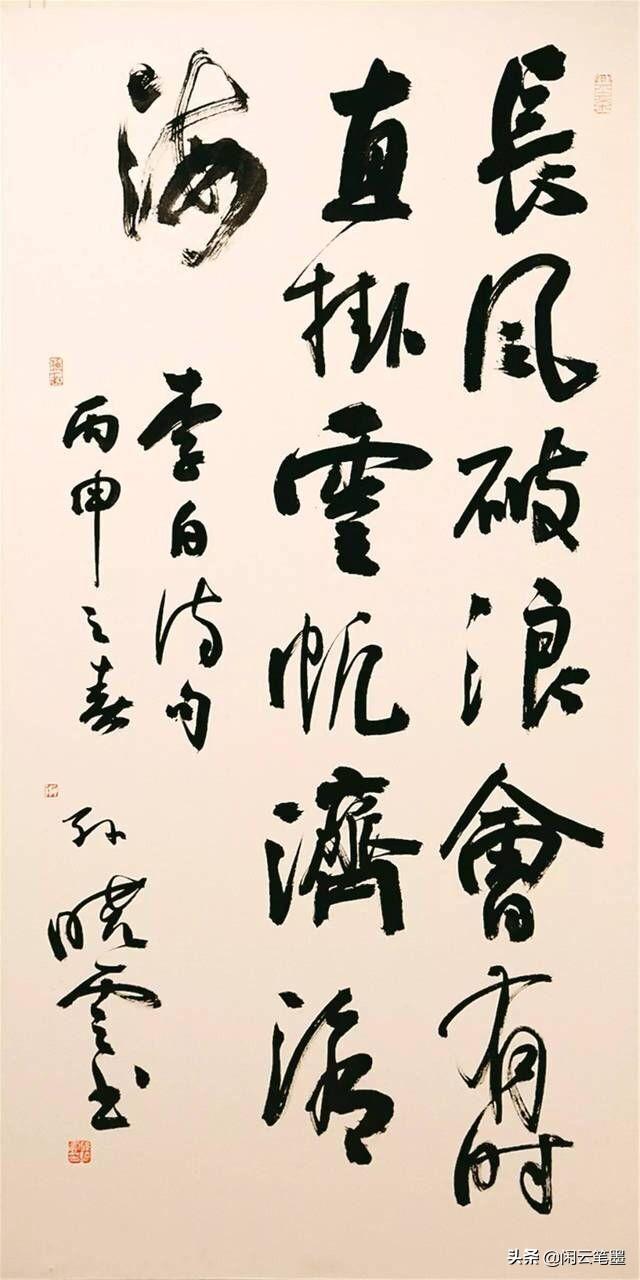 長風破浪會有时
直掛雲帆濟滄
海
李白诗句
丙申之春
孙晓云书
头条 @闲云笔墨